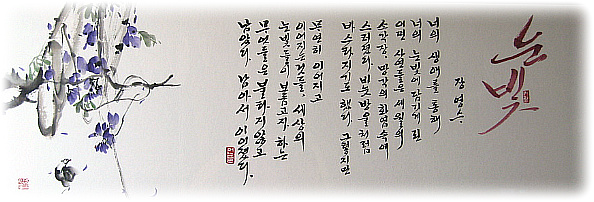 눈빛
장영수
너의 생애를 통해
너의 눈빛에 담기게 된
어떤 사연들은 세월의
소각장, 망각의 화염 속에
스러졌다. 비눗방울처럼
바스라지기도 했다. 그렇지만
면연히 이어지고
이어지는 것들, 세상의
눈빛들이 보듬고자 하는
무엇들은 불타지 않고
남았다. 남아서 이어졌다.